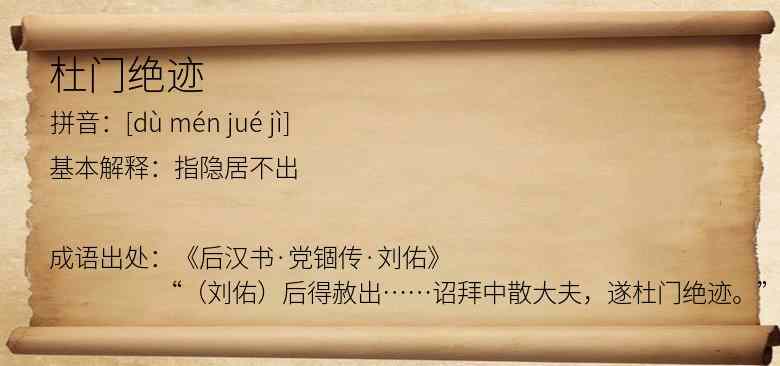 杜门绝迹
拼音：[dù mén jué jì]
基本解释：指隐居不出
成语出处：《后汉书·党锢传·刘佑》
“（刘佑）后得赦出……诏拜中散大夫，遂杜门绝迹。”